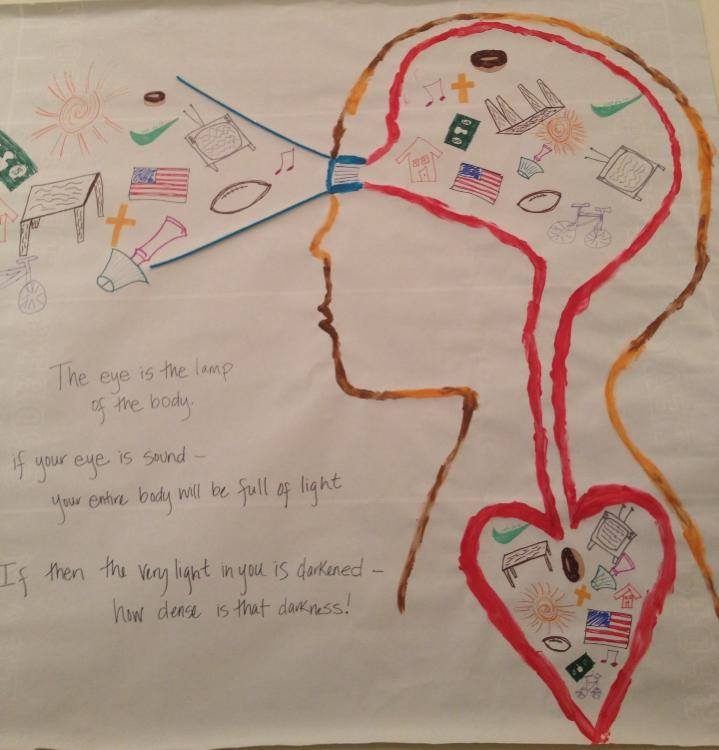 The eye is the lamp
of the body.
if your eye is sound –
your entire body will be full of light
If then the very light in you is darkened –
how dense is that darkness!